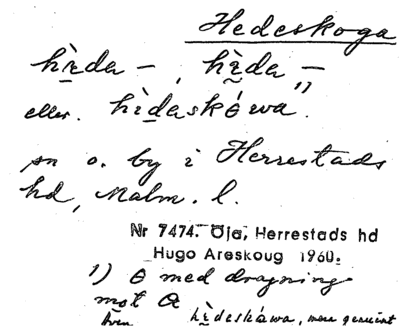 Hedeskoga
hè̱da – , hè̱da –
eller. hèdaskówa 1).
sn o. by i Herrestads
hd, Malm. l.
Nr 7474. Öja, Herrestads hd
Hugo Areskoug 1960.
1) ɵ med dragning
mot a
Även hèdeskówa, mera genuint